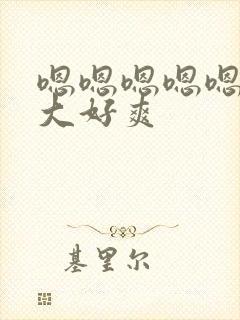 嗯嗯嗯嗯嗯
大好爽
基里尔